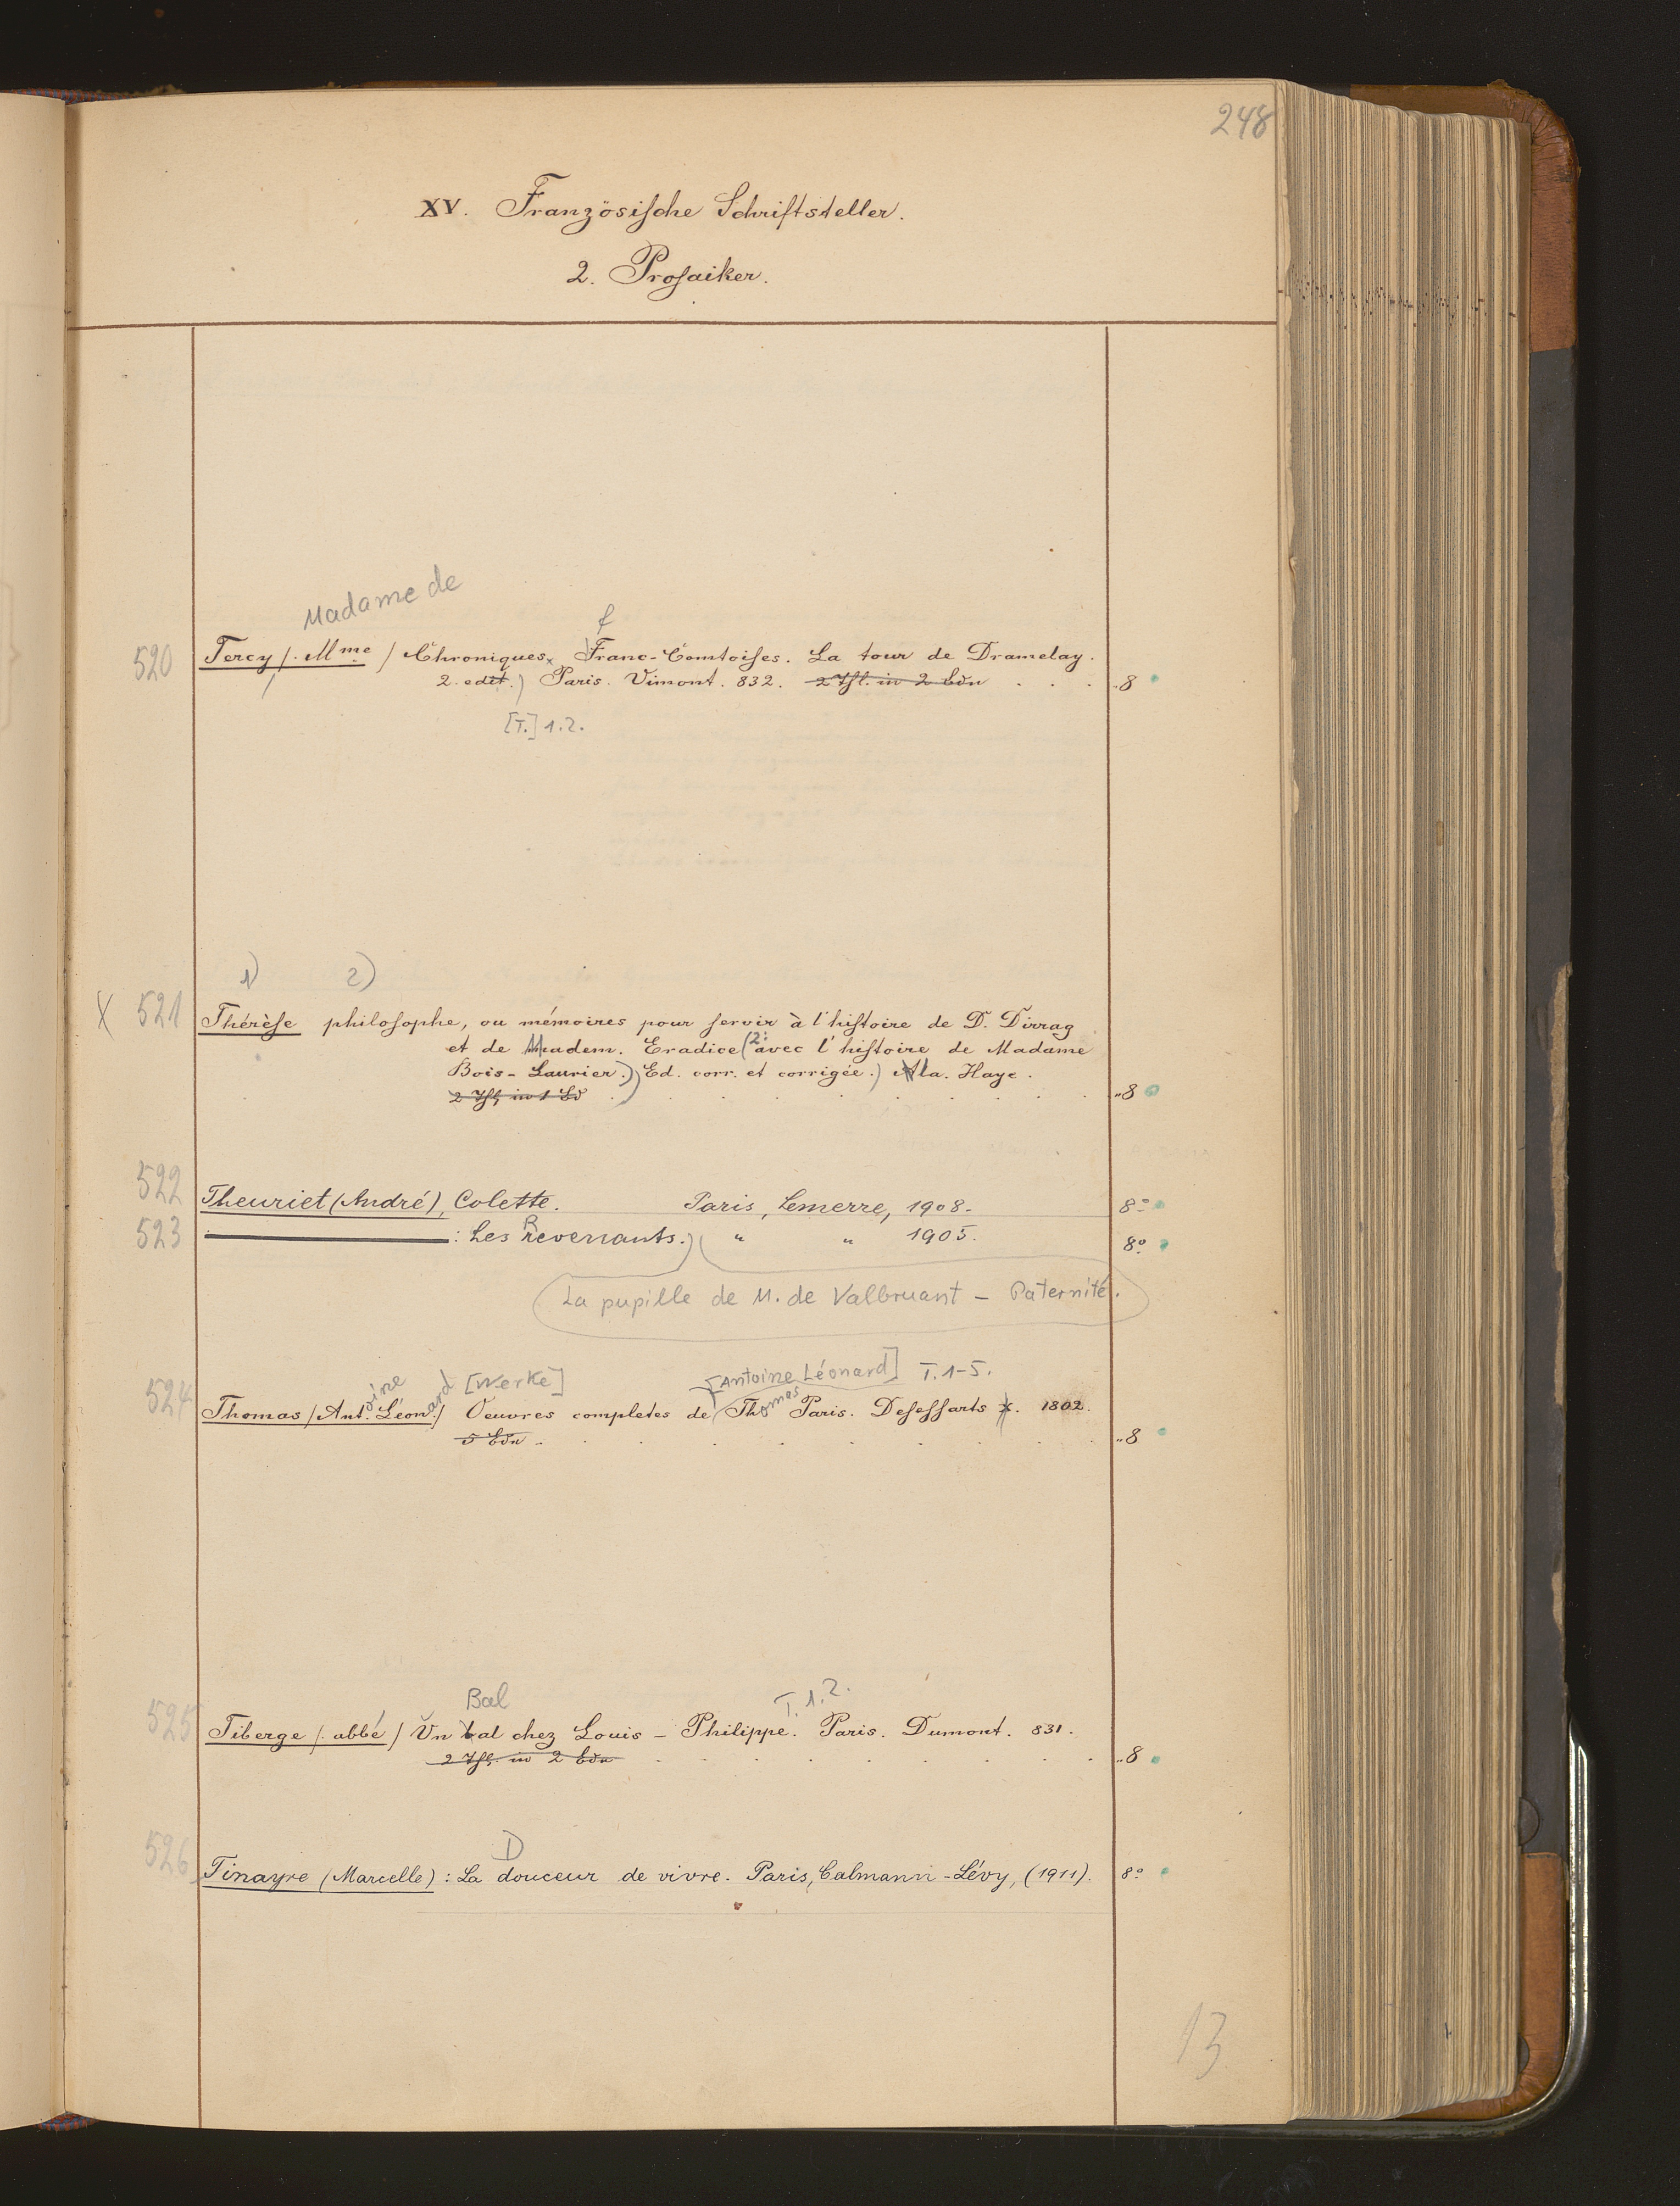 248
XV. Französische Schriftsteller.
2. Prosaiker.
Madame de
f
520 Tercy /. Mme / Chroniques Franc-Comtoises. La tour de Dramelay.
2. edit.) Paris. Vimont. 832. 2 Thl. in 2 Bdn . . . „8
[T.] 1.2.
1) 2)
X 521 Thérèse philosophe, ou mémoires pour servir à l'histoire de D. Dirrag
et de Madem. Eradice (2: avec l'histoire de Madame
Bois-Laurier.)) Ed. corr. et corrigée.) A la Haye.
2 Thl. in 1 Bd . . . . . . . . „8
522 Theuriet (André), Colette. Paris, Lemerre, 1908. 8º
523 ——— : Les Revenants.) ( " " 1905. 8º
La pupille de M. de Valbruant – Paternité.
oine ard [Werke] [Antoine Léonard] T. 1-5.
524 Thomas /Ant. Léon./ Oeuvres completes de Thomas Paris. Desessarts x. 1802.
5 Bdn . . . . . . . . „8
Bal T. 1.2.
525 Tiberge /. abbé / Un bal chez Louis-Philippe. Paris. Dumont. 831.
2 Thl. in 2 Bdn . . . . . . . . „8
D
526 Tinayre (Marcelle) : La douceur de vivre. Paris, Calmann-Lévy, (1911). 8º
13